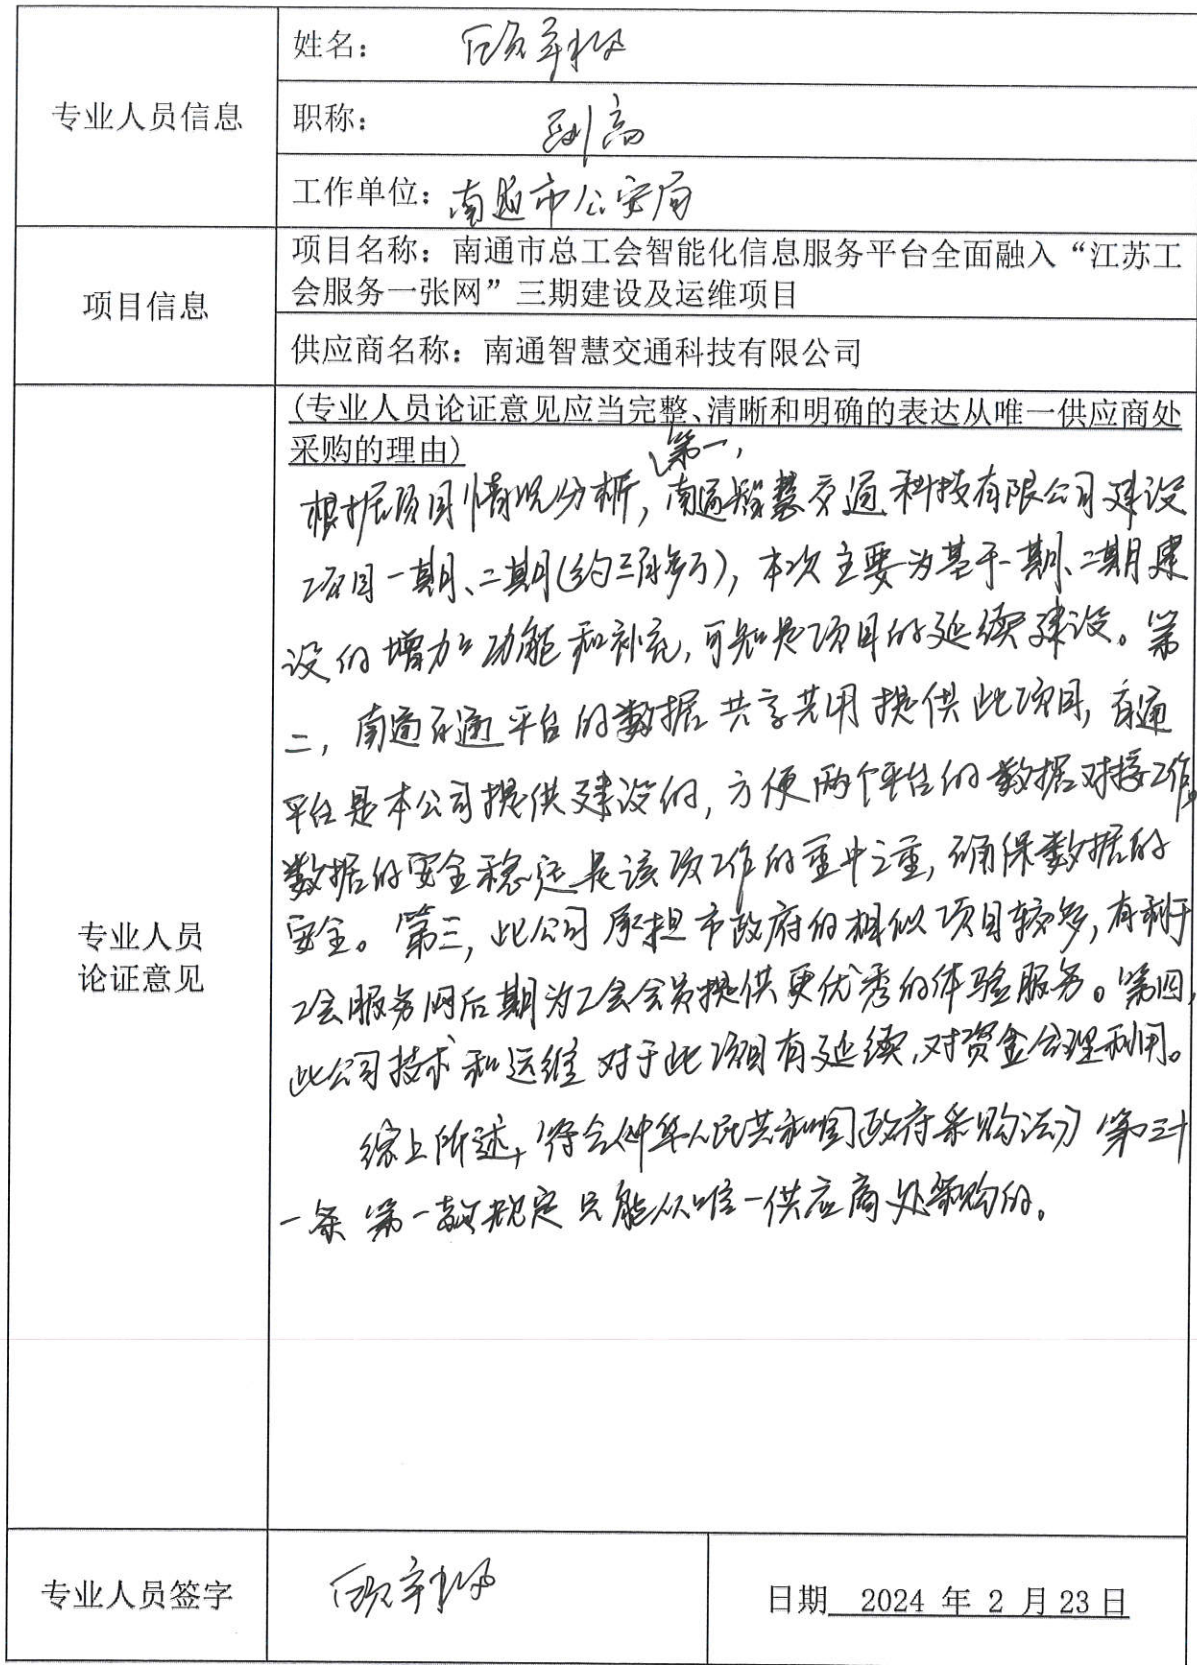 专业人员信息
姓名：
职称： 副高
工作单位：南通市公安局
项目信息
项目名称：南通市总工会智能化信息服务平台全面融入“江苏工
会服务一张网”三期建设及运维项目
供应商名称：南通智慧交通科技有限公司
专业人员
论证意见
(专业人员论证意见应当完整、清晰和明确的表达从唯一供应商处
采购的理由)
第一，
根据项目情况分析，南通智慧交通科技有限公司建设
项目一期、二期(约三百多万)，本次主要为基于一期、二期建
设的增加功能和补充，可知是项目的延续建设。第
二，南通百通平台的数据共享共用提供此项目，百通
平台是本公司提供建设的，方便两个平台的数据对接工作，
数据的安全稳定是该项工作的重中之重，确保数据的
安全。第三，此公司承担市政府的相似项目较多，有利于
工会服务网后期为工会会员提供更优秀的体验服务。第四，
此公司技术和运维对于此项目有延续，对资金合理利用。
综上所述，符合《中华人民共和国政府采购法》第三十
一条第一款规定只能从唯一供应商处采购的。
专业人员签字
日期 2024 年 2 月 23 日